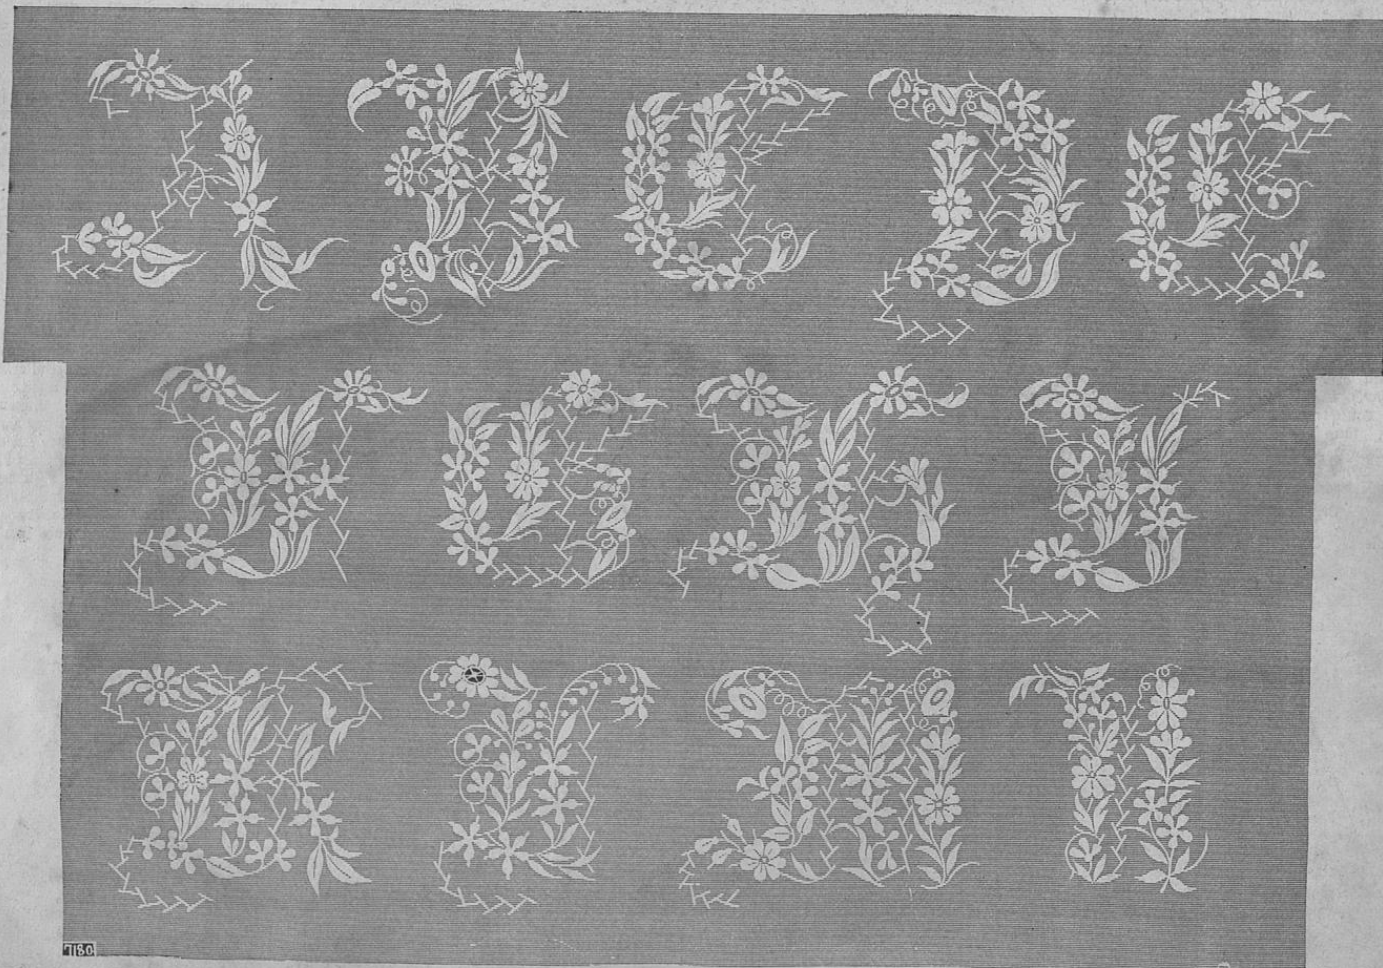 A B C D E
F G H I
K L M N
7180